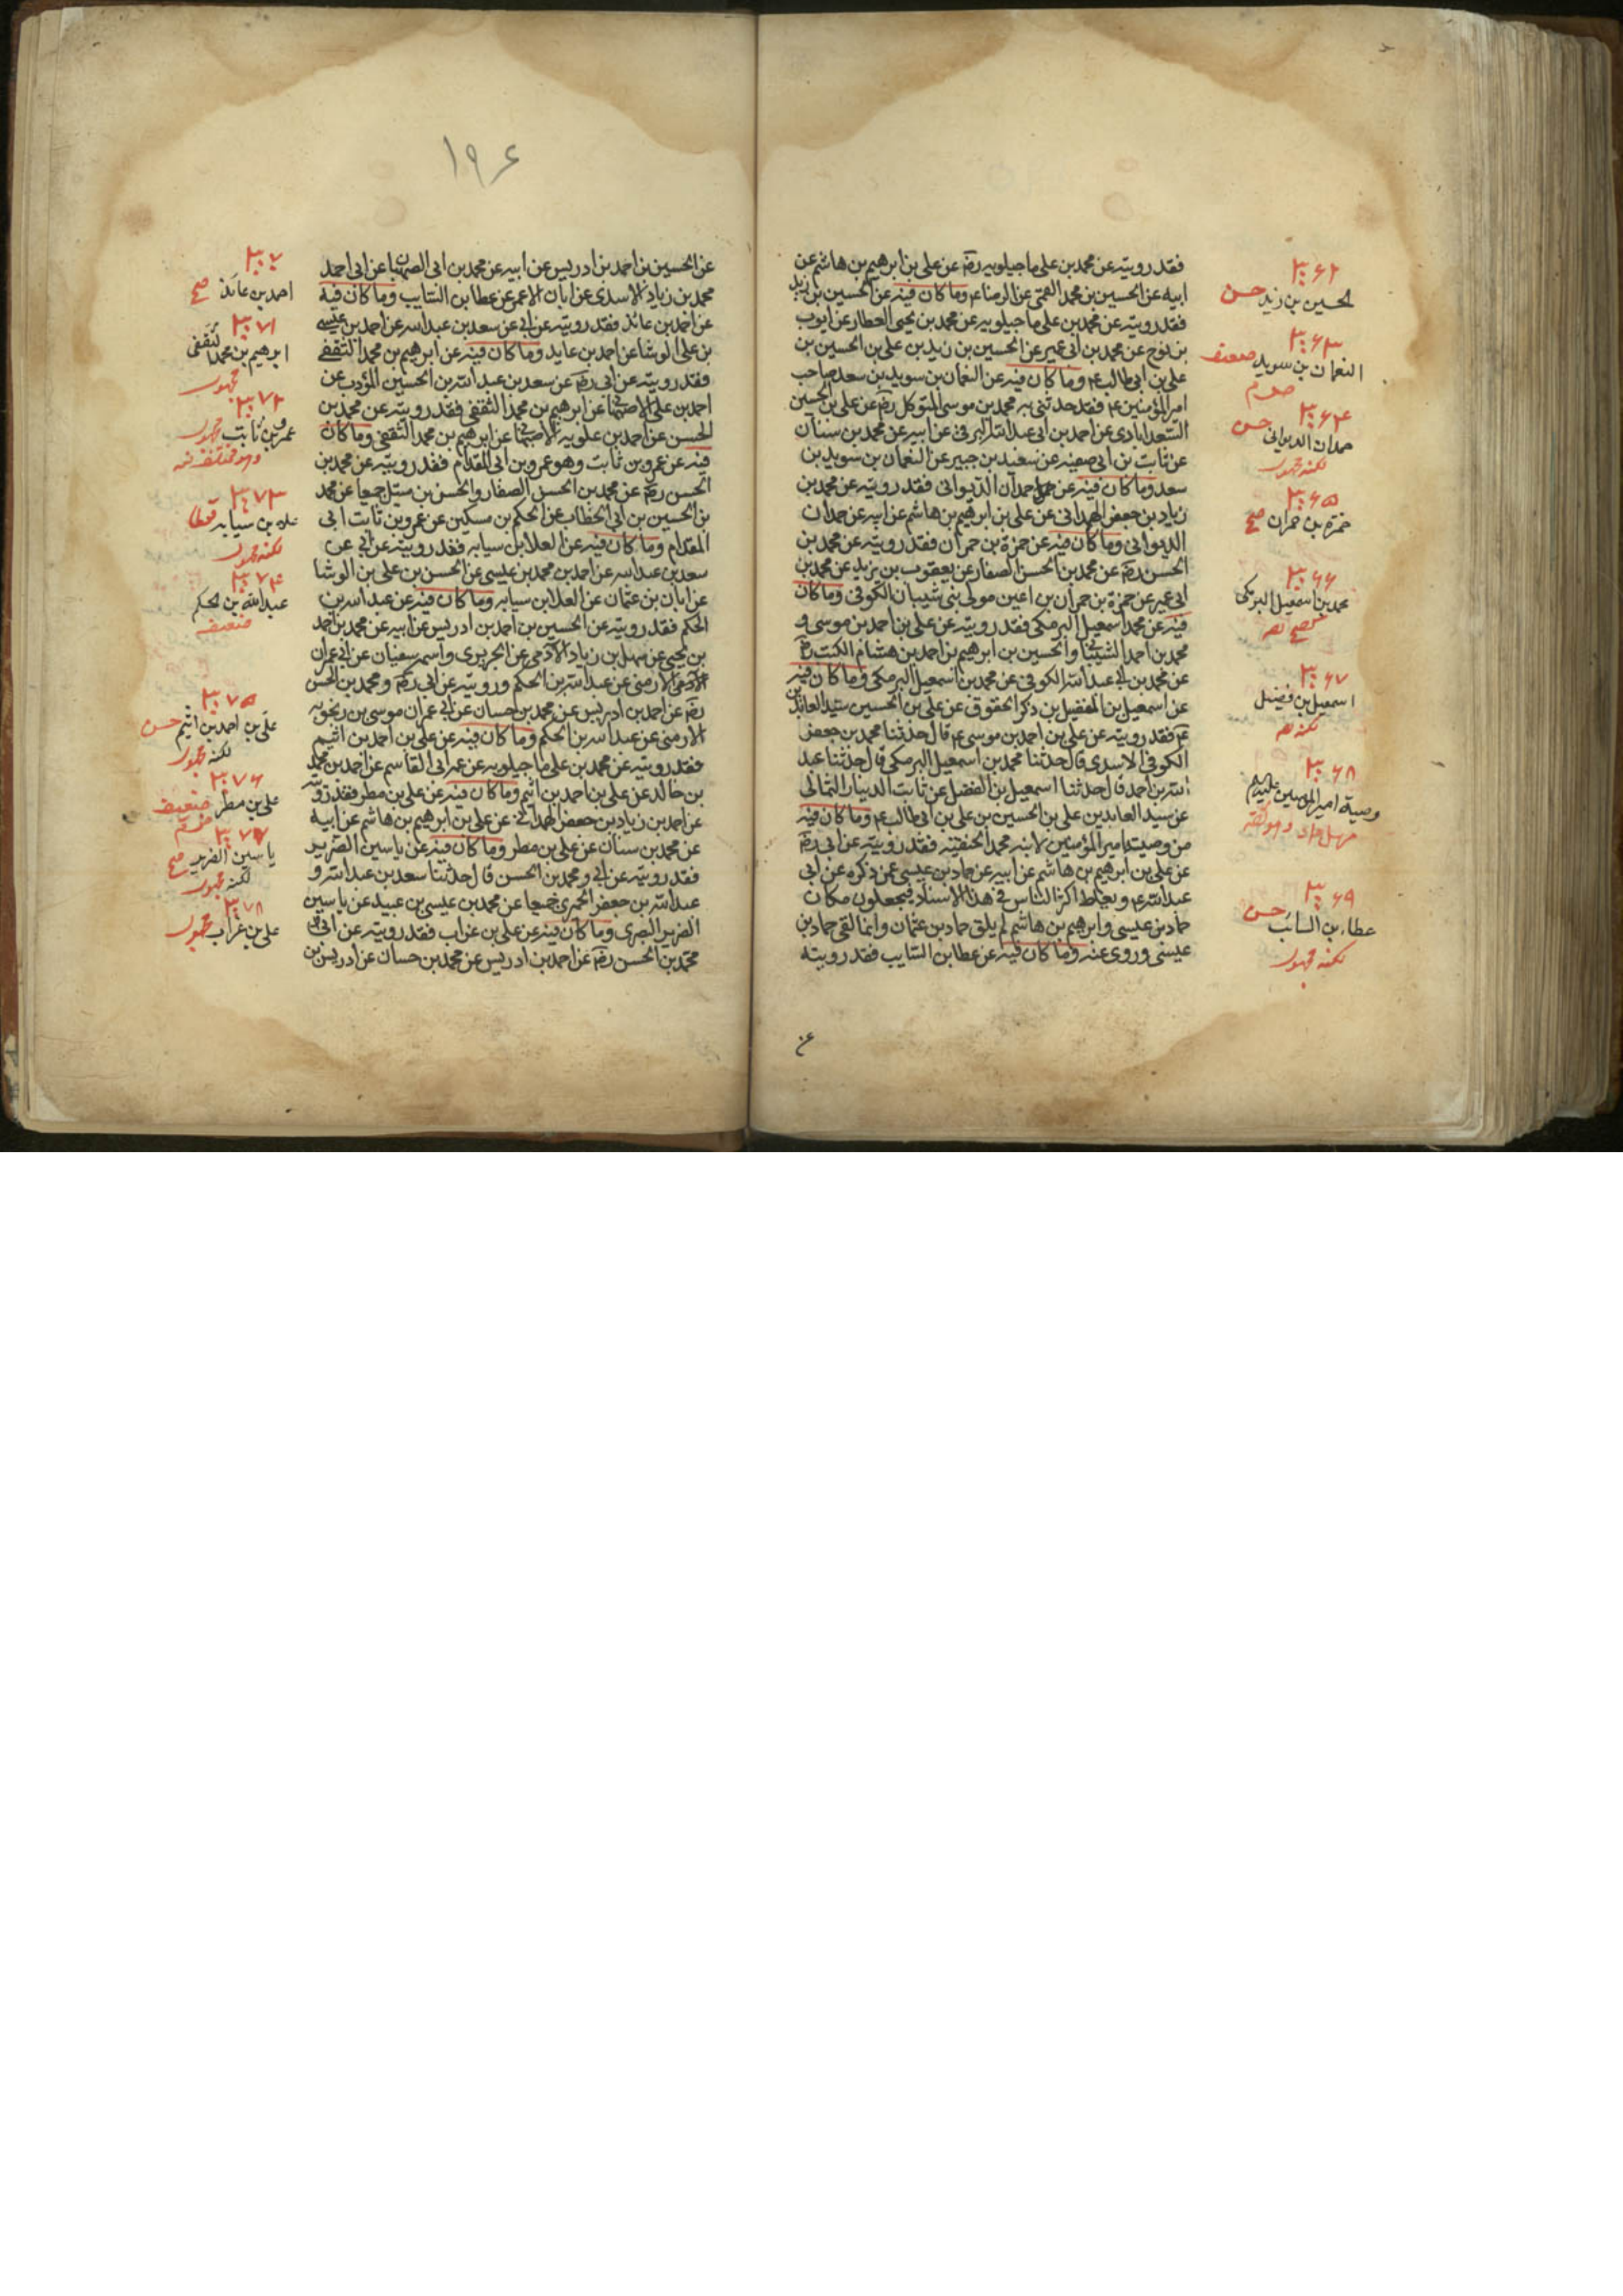 فقد رويته عن محمد بن على ماجيلويه رضه عن على بن ابرهيم بن هاشم عن
ابيه عن الحسين بن محمد القمى عن الرضا ع وما كان فيه عن الحسين بن زيد
فقد رويته عن محمد بن على ماجيلويه عن محمد بن يحيى العطار عن ايوب
بن نوح عن محمد بن ابى عمير عن الحسين بن زيد بن على بن الحسين بن
على بن ابى طالب ع وما كان فيه عن النعمان بن سويد بن سعد صاحب
امير المؤمنين ع فقد حدثنى به محمد بن موسى المتوكل رضه عن على بن الحسين
السعدابادى عن احمد بن ابى عبد الله البرقى عن ابيه عن محمد بن سنان
عن ثابت بن ابى صفيه عن سعيد بن جبير عن النعمان بن سويد بن
سعد وما كان فيه عن حمدان الديوانى فقد رويته عن محمد بن
زياد بن جعفر الهمدانى عن على بن ابرهيم بن هاشم عن ابيه عن حمدان
الديوانى وما كان فيه عن حمزة بن حمران فقد رويته عن محمد بن
الحسن رضه عن محمد بن الحسن الصفار عن يعقوب بن يزيد عن محمد بن
ابى عمير عن حمزة بن حمران بن اعين مولى بنى شيبان الكوفى وما كان
فيه عن محمد اسمعيل البرمكى فقد رويته عن على بن احمد بن موسى و
محمد بن احمد الشيبانى والحسين بن ابرهيم بن احمد بن هشام الكتب رضه
عن محمد بن ابى عبد الله الكوفى عن محمد بن اسمعيل البرمكى وما كان فيه
عن اسمعيل بن الفضل بن ذكر الحقوق عن على بن الحسين سيد العابدين
ع فقد رويته عن على بن احمد بن موسى ع قال حدثنا محمد بن جعفر
الكوفى الاسدى قال حدثنا محمد بن اسمعيل البرمكى قال حدثنا عبد
الله بن احمد قال حدثنا اسمعيل بن الفضل عن ثابت الدينار الثمالى
عن سيد العابدين على بن الحسين بن على بن ابى طالب ع وما كان فيه
من وصية امير المؤمنين لابنه محمد الحنفيه فقد رويته عن ابى رضه
عن على بن ابرهيم بن هاشم عن ابيه عن حماد بن عيسى عمن ذكره عن ابى
عبد الله ع ويغلط اكثر الناس فى هذا الاسناد فيجعلون مكان
حماد بن عيسى وابرهيم بن هاشم لم يلق حماد بن عثمان وانما لقى حماد بن
عيسى وروى عنه وما كان فيه عن عطا بن السايب فقد رويته
عن
٣٠٦٢
الحسين بن زيد حسن
٣٠٦٣
النعمان بن سويد ضعيف
٣٠٦٤
حمدان الديوانى حسن
لكنه مجهول
٣٠٦٥
حمزة بن حمران صح
٣٠٦٦
محمد بن اسمعيل البرمكى
٣٠٦٧
اسمعيل بن فضيل
٣٠٦٨
وصية امير المومنين عليه م
٣٠٦٩
عطاء بن السائب حسن
لكنه مجهول
١٩٤
عن الحسين بن احمد بن ادريس عن ابيه عن محمد بن ابى الصهبان عن ابى احمد
محمد بن زياد الاسدى عن ابان الاحمر عن عطا بن السايب وما كان فيه
عن احمد بن عائد فقد رويته عن ابى عن سعد بن عبد الله عن احمد بن عيسى
بن على الوشا عن احمد بن عايد وما كان فيه عن ابرهيم بن محمد الثقفى
فقد رويته عن ابى رضه عن سعد بن عبد الله بن الحسين المؤدب عن
احمد بن على الاصبهانى عن ابرهيم بن محمد الثقفى فقد رويته عن محمد بن
الحسن عن احمد بن علويه الاصبهانى عن ابرهيم بن محمد الثقفى وما كان
فيه عن عمرو بن ثابت وهو عمرو بن ابى المقدام فقد رويته عن محمد بن
الحسن رضه عن محمد بن الحسن الصفار والحسن بن متيل جميعا عن محمد
بن الحسين بن ابى الخطاب عن الحكم بن مسكين عن عمرو بن ثابت ابى
المقدام وما كان فيه عن العلا بن سيابه فقد رويته عن ابى عن
سعد بن عبد الله عن احمد بن محمد بن عيسى عن الحسن بن على بن الوشا
عن ابان بن عثمان عن العلا بن سيابه وما كان فيه عن عبد الله بن
الحكم فقد رويته عن الحسين بن احمد بن ادريس عن ابيه عن محمد بن احمد
بن يحيى عن سهل بن زياد الآدمى عن الجريرى واسمه سفيان عن ابى عمران
الارمنى عن عبد الله بن الحكم ورويته عن ابى رضه ومحمد بن الحسن
رضه عن احمد بن ادريس عن محمد بن حسان عن ابى عمران موسى بن رنجويه
الارمنى عن عبد الله بن الحكم وما كان فيه عن على بن احمد بن اشيم
فقد رويته عن محمد بن على ماجيلويه عن عمه ابى القاسم عن احمد بن محمد
بن خالد عن على بن احمد بن اشيم وما كان فيه عن على بن مطر فقد رويته
عن احمد بن زياد بن جعفر الهمدانى عن على بن ابرهيم بن هاشم عن ابيه
عن محمد بن سنان عن على بن مطر وما كان فيه عن ياسين الضرير
فقد رويته عن ابى ومحمد بن الحسن قال حدثنا سعد بن عبد الله و
عبد الله بن جعفر الحميرى جميعا عن محمد بن عيسى بن عبيد عن ياسين
الضرير البصرى وما كان فيه عن على بن غراب فقد رويته عن ابى و
محمد بن الحسن رضه عن احمد بن ادريس عن محمد بن حسان عن ادريس بن
٣٠٧
احمد بن عائذ صح
٣٠٧١
ابرهيم بن محمد الثقفى
مجهول
٣٠٧٢
عمرو بن ثابت مجهول
٣٠٧٣
علاء بن سيابه
لكنه مجهول
٣٠٧٤
عبد الله بن الحكم
ضعيف
٣٠٧٥
على بن احمد بن اشيم حسن
لكنه مجهول
٣٠٧٦
على بن مطر ضعيف
٣٠٧٧
ياسين الضرير صح
لكنه مجهول
٣٠٧٨
على بن غراب مجهول